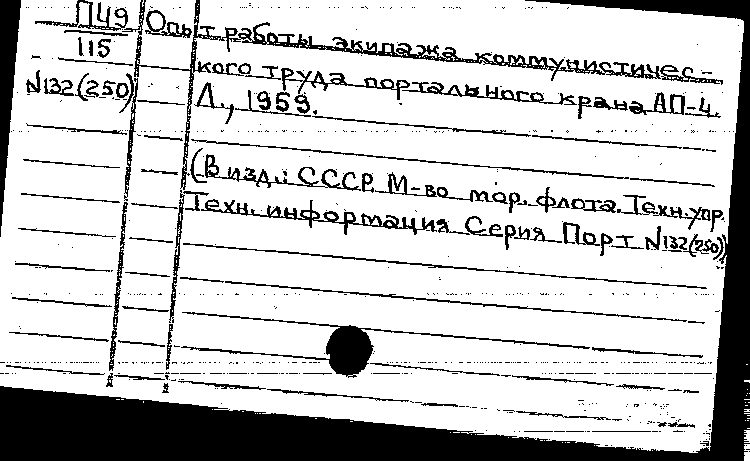 П49
115
N132(250)
Опыт работы экипажа коммунистичес-
кого труда портального крана АП-4.
Л., 1959.
(В изд.: СССР. М-во мор. флота. Техн. упр.
Техн. информация Серия Порт N132(250))